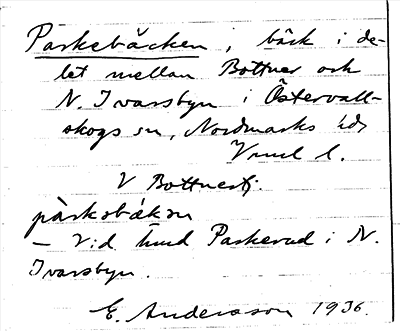 Parkebäcken, bäck i de-
let mellan Bottner och
N. Ivarsbyn i Östervall-
skogs sn, Nordmarks hd,
Vrml l.
V Bottnertj.
parksbäksn
– Vid hmd Parkerud i N.
Ivarsbyn.
E. Andersson 1936.